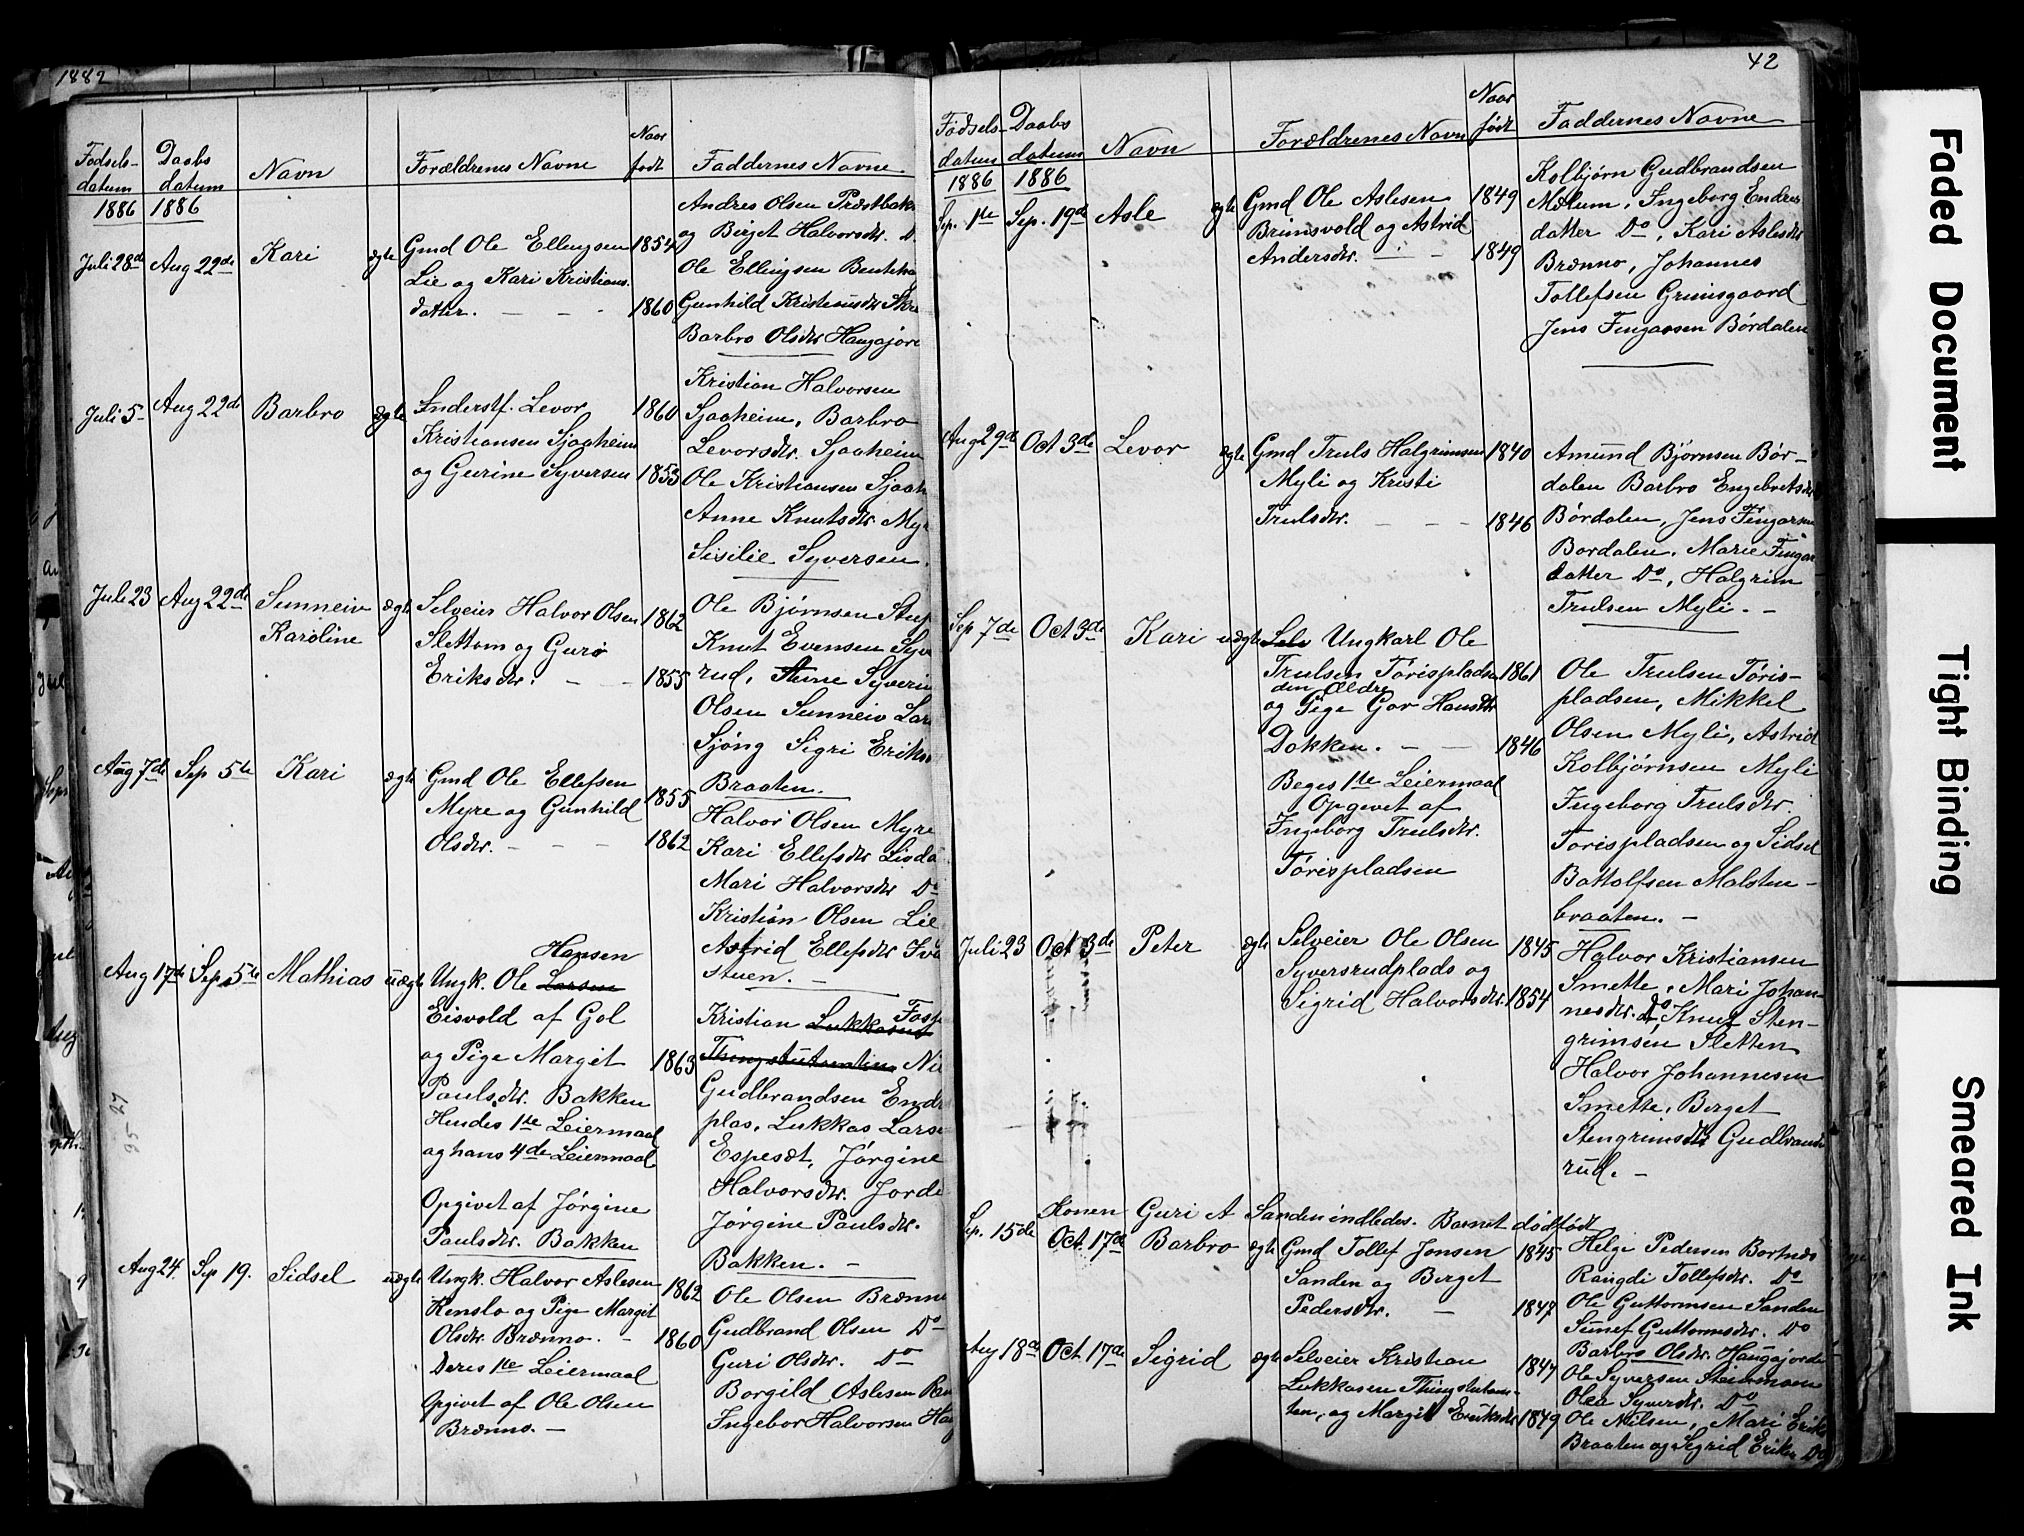 1882
Fødsels-
datum
1886
Daabs
datum
1886
Navn
Forældrenes Navne
Naar
født
Faddernes Navne
Juli 28de
Aug 22de
Kari
ægte
Gmd Ole Ellingsen
Lie og Kari Kristians.
datter. - - -
1854
1860
Andres Olsen Præstbak
og Birget Halvorsdtr.
Ole Ellingsen
Gunhild Kristiansdtr
Barbro Olsdtr Haugajore
Juli 5
Aug 22de
Barbro
ægte
Inderstf. Levor
Kristiansen Sjaaheim
og Gurine Syversen
1860
1853
Kristian Halvorsen
Sjaaheim, Barbro
Levorsdtr. Sjaaheim
Ole Kristiansen Sjaah
Anne Knutsdtr Myr
Sisilie Syversen.
Juli 23
Aug 22de
Sunneiv
Karoline
ægte
Selveier Halvor Olsen
Slettom og Guro
Eriksdtr. - -
1862
1855
Ole Bjørnsen
Knut Evensen Syv
rud, Anne Syverin
Olsen Sunneiv Lar
Sjong Sigri Eriks
Braaten.
Aug 7de
Sep 5te
Kari
ægte
Gmd Ole Ellefsen
Myre og Gunhild
Olsdtr. - - -
1855
1862
Halvor Olsen Myre
Kari Ellefsdtr
Mari Halvorsdtr Do
Kristian Olsen Lie
Astrid Ellefsdtr
stuen. -
Aug 17de
Sep 5te
Mathias
uægte
Hansen
Ungk. Ole Larsen
Eisvold af Gol
og Pige Margit
Paulsdtr. Bakken
Hendes 1te Leiermaal
og hans 4de Leiermaal
Opgivet af Jørgine
Paulsdtr. Bakken
1863
Kristian Lukkasen
Gudbrandsen End
plas, Lukkas Lars
Espesæt, Jørgine
Halvorsdtr. Jorde
Jørgine Paulsdtr.
Bakken. -
Aug 24
Sep 19.
Sidsel
uægte
Ungk. Halvor Aslesen
Renslo og Pige Margit
Olsdtr Brænno. -
Deres 1te Leiermaal
Opgivet af Ole Olsen
Brænno. -
1862
1860
Ole Olsen Brænno
Gudbrand Olsen Do
Guri Olsdtr. Do
Borgild Aslesen
Ingebor Halvorsen
95-27
42
Fødsels-
datum
1886
Daabs
datum
1886
Navn
Forældrenes Navn
Naar
født
Faddernes Navne
Sep. 1te
Sep. 19de
Asle
ægte
Gmd Ole Aslesen
Brunsvold og Astrid
Andersdtr. - -
1849
1849
Kolbjørn Gudbrandsen
Mælum, Ingeborg Endres
datter Do, Kari Aslesdtr
Brænno, Johannes
Tollefsen Grimsgaard
Jens Fingarsen Børdalen
Aug 29de
Oct 3de
Levor
ægte
Gmd Truls Halgrimsen
Myli og Kristi
Trulsdtr. - - -
1840
1846
Amund Bjørnsen Bør-
dalen Barbro Engebretsdtr
Børdalen, Jens Fingarsen
Bordalen, Marie Fingar
datter Do, Halgrim
Trulsen Myli. -
Sep 7de
Oct 3de
Kari
uægte
Selv Ungkarl Ole
Trulsen Tørispladsen
den Ældre
og Pige Gor Hansdtr
Dokken. - -
Beges 1te Leiermaal
Opgivet af
Ingeborg Trulsdtr.
Tørispladsen
1861
1846
Ole Trulsen Tøris-
pladsen, Mikkel
Olsen Myli, Astrid
Kolbjørnsen Myli
Ingeborg Trulsdtr.
Torispladsen og Sidsel
Bottolfsen Molsten-
braaten. -
Juli 23
Oct 3de
Peter
ægte
Selveier Ole Olsen
Syversrudplads og
Sigrid Halvorsdtr.
1845
1854
Halvor Kristiansen
Smette, Mari Johan-
nesdtr. Do, Knut Sten-
grimsen Sletten
Halvor Johannesen
Smette, Berget
Stengrimsdtr Gudbrands
rud. -
Konen Guri A Sanden indledes. Barnet dødfødt
Sep. 15de
Oct. 17de
Barbro
ægte
Gmd Tollef Jonsen
Sanden og Berget
Pedersdtr. -
1845
1847
Helge Pedersen Bortnæs
Rangdi Tollefsdtr. Do
Ole Guttormsen Sanden
Sunef Guttormsdtr. Do
Barbro Olsdtr. Haugajorde
Aug 18de
Oct 17de
Sigrid
ægte
Selveier Kristian
Lukkasen Thingstutom-
ten, og Margit Eriksdtr
1847
1849
Ole Syversen Steinmoen
Olea Syversdtr. Do
Ole Nilsen, Mari Eriks
Braaten og Sigrid Eriksen Do
Faded Document
Tight Binding
Smeared Ink